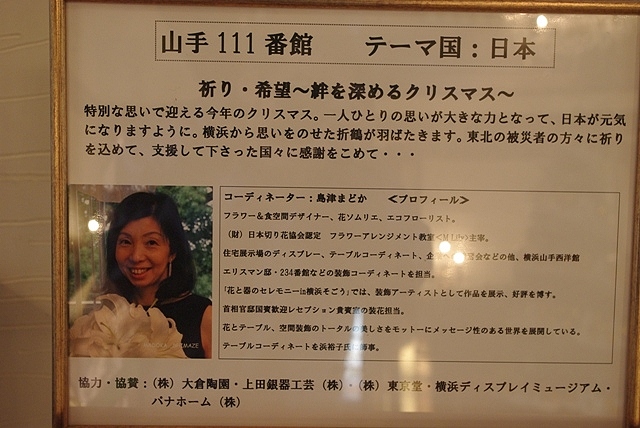 山手 111 番館　　テーマ国：日本
祈り・希望～絆を深めるクリスマス～
特別な思いで迎える今年のクリスマス。一人ひとりの思いが大きな力となって、日本が元気
になりますように。横浜から思いをのせた折鶴が羽ばたきます。東北の被災者の方々に祈り
を込めて、支援して下さった国々に感謝をこめて・・・
コーディネーター：島津まどか　　＜プロフィール＞
フラワー＆食空間デザイナー、花ソムリエ、エコフローリスト。
（財）日本切り花協会認定　フラワーアレンジメント教室 主宰。
住宅展示場のディスプレー、テーブルコーディネート、 会などの他、横浜山手西洋館
エリスマン邸・234番館などの装飾コーディネートを担当。
「花と器のセレモニーin横浜そごう」では、装飾アーティストとして作品を展示、好評を博す。
首相官邸国賓歓迎レセプション貴賓室の装花担当。
花とテーブル、空間装飾のトータルの美しさをモットーにメッセージ性のある世界を展開している。
テーブルコーディネートを浜裕子氏に師事。
協力・協賛：（株）大倉陶園・上田銀器工芸（株）・（株）東京堂・横浜ディスプレイミュージアム・
パナホーム（株）